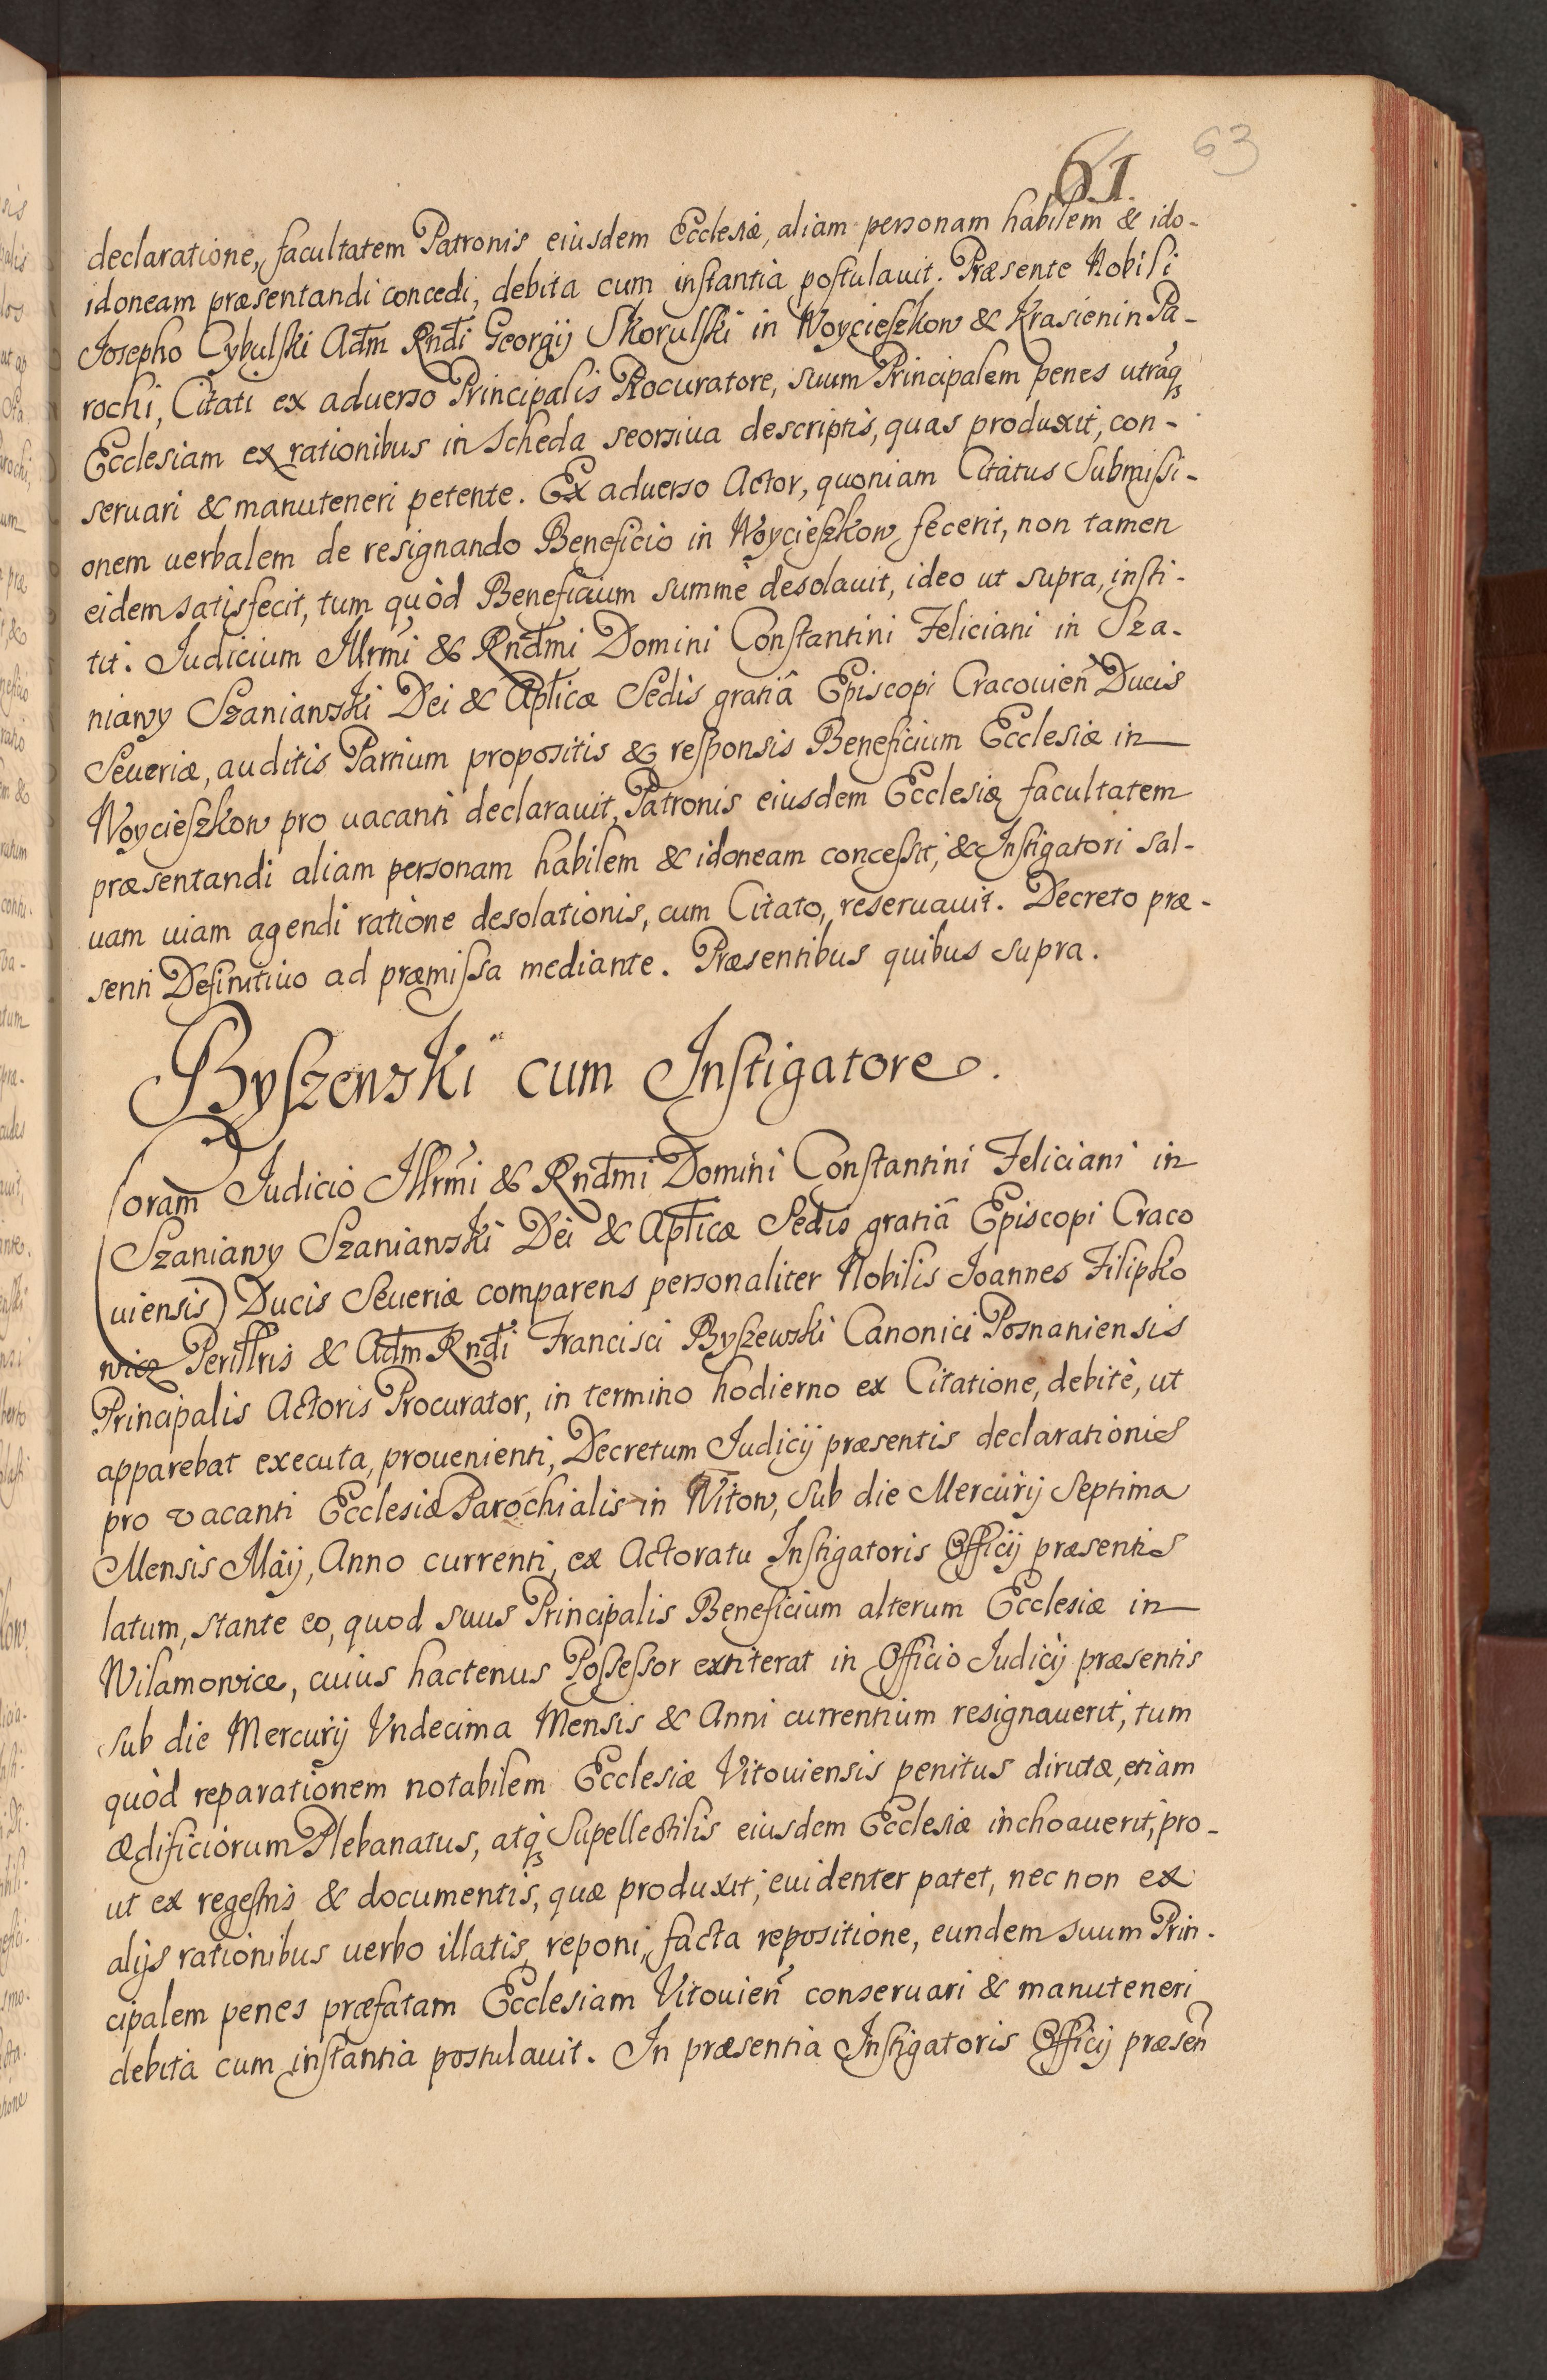 63
61.
declaratione, facultatem Patronis eiusdem Ecclesiæ, aliam personam habilem & ido-
idoneam præsentandi concedi, debita cum instantia postulauit. Præsente Nobili
Josepho Cybulski Adm Rndi Georgij Skorulski in Woycieszkow & Krasienin Pa-
rochi, Citati ex aduerso Principalis Procuratore, suum Principalem penes utramq
Ecclesiam ex rationibus in Scheda seorsiua descriptis, quas produxit, con-
seruari & manuteneri petente. Ex aduerso Actor, quoniam Citatus Submissi-
onem uerbalem de resignando Beneficio in Woycieszkow fecerit, non tamen
eidem satisfecit, tum quòd Beneficium summè desolauit, ideo ut supra, insti-
tit. Judicium Illrmi & Rndmi Domini Constantini Feliciani in Sza-
niawy Szaniawski Dei & Aplicæ Sedis gratiâ Episcopi Cracouien Ducis
Seueriæ, auditis Partium propositis & responsis Beneficium Ecclesiæ in
Woycieszkow pro uacanti declarauit, Patronis eiusdem Ecclesiæ facultatem
præsentandi aliam personam habilem & idoneam concessit, & Instigatori sal-
uam uiam agendi ratione desolationis, cum Citato, reseruauit. Decreto præ-
senti Definitiuo ad præmissa mediante. Præsentibus quibus supra.
Byszewski cum Instigatore.
Coram Judicio Illrmi & Rndmi Domini Constantini Feliciani in
Szaniawy Szaniawski Dei & Aplicæ Sedis gratiâ Episcopi Craco
uiensis Ducis Seueriæ comparens personaliter Nobilis Joannes Filipko
wicz Perillris & Adm Rndi Francisci Byszewski Canonici Posnaniensis
Principalis Actoris Procurator, in termino hodierno ex Citatione, debitè, ut
apparebat executa, prouenienti, Decretum Judicij præsentis declarationis
pro vacanti Ecclesiæ Parochialis in Witow, sub die Mercurij Septima
Mensis Maij, Anno currenti, ex Actoratu Instigatoris Officij præsentis
latum, stante eo, quod suus Principalis Beneficium alterum Ecclesiæ in
Wilamowice, cuius hactenus Possessor extiterat in Officio Judicij præsentis
sub die Mercurij Vndecima Mensis & Anni currentium resignauerit, tum
quòd reparationem notabilem Ecclesiæ Vitouiensis penitus dirutæ, etiam
ædificiorum Plebanatus, atq Supellectilis eiusdem Ecclesiæ inchoauerit, pro-
ut ex regestris & documentis, quæ produxit, euidenter patet, nec non ex
alijs rationibus uerbo illatis, reponi, facta repositione, eundem suum Prin-
cipalem penes præfatam Ecclesiam Vitouien conseruari & manuteneri
debita cum instantia postulauit. In præsentia Instigatoris Officij præsen